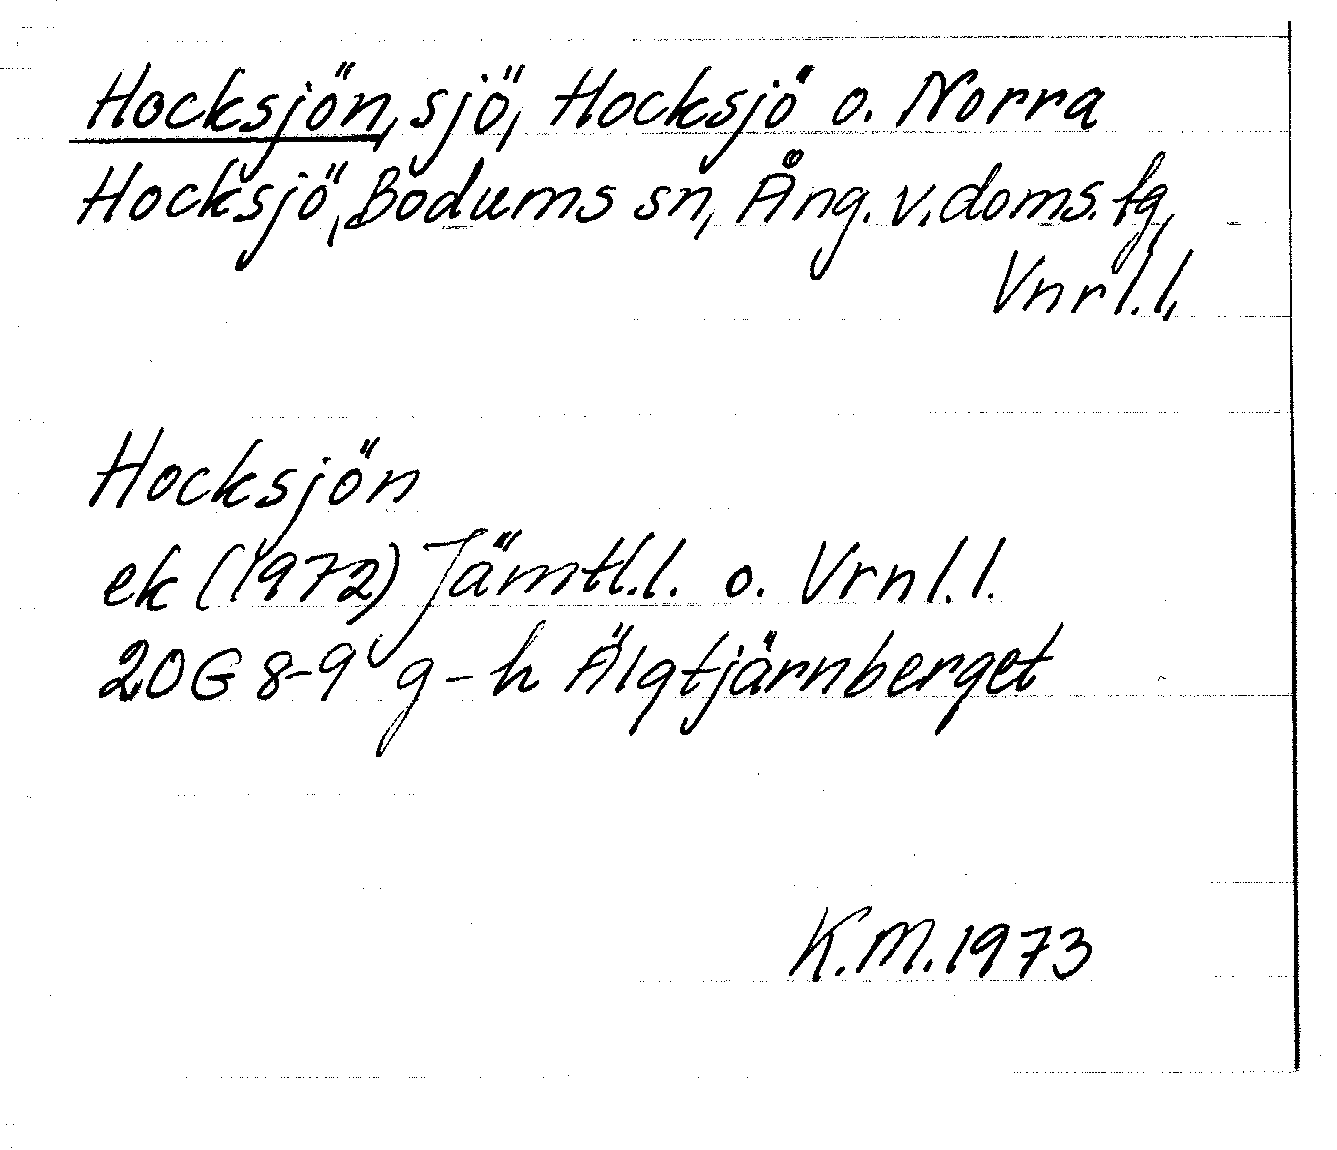 Hocksjön, sjö, Hocksjö o. Norra
Hocksjö, Bodums sn, Ång. v. doms. fg,
Vnrl.l.
Hocksjön
ek (1972) Jämtl.l. o. Vrnl.l.
20G 8-9 g-h Älgtjärnberget
K.M. 1973